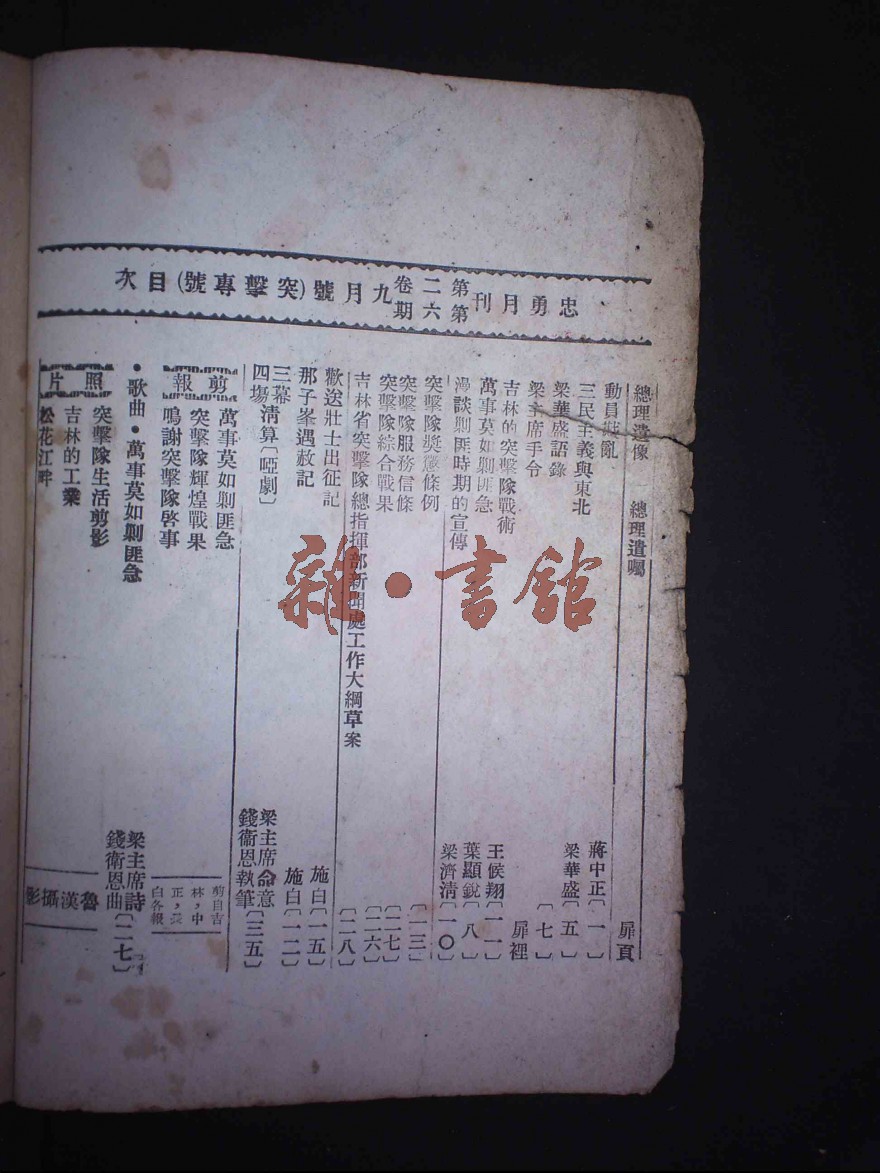 忠勇月刊 第二卷第六期 九月號(突擊專號)目次
總理遺像 總理遺囑 扉頁
動員戡亂 蔣中正〔一〕
三民主義與東北 梁華盛〔五〕
梁華盛語錄 〔七〕
梁主席手令 扉裡
吉林的突擊隊戰術 王候翔〔一一〕
萬事莫如剿匪急 葉顯銳〔八〕
漫談剿匪時期的宣傳 梁濟清〔一〇〕
突擊隊獎懲條例 〔一三〕
突擊隊服務信條 〔二七〕
突擊隊綜合戰果 〔二六〕
吉林省突擊隊總指揮部新聞處工作大綱草案 〔二八〕
歡送壯士出征記 施白〔一五〕
那子峯遇赦記 施白〔一二〕
三幕四場清算〔啞劇〕 梁主席命意 錢衞恩執筆〔三五〕
剪報
萬事莫如剿匪急
突擊隊輝煌戰果
鳴謝突擊隊啓事
剪自吉林,中正,長白各報
•歌曲•萬事莫如剿匪急 梁主席詩 錢衞恩曲〔二七〕
照片
突擊隊生活剪影
吉林的工業
松花江畔
魯漢攝影
雜·書館